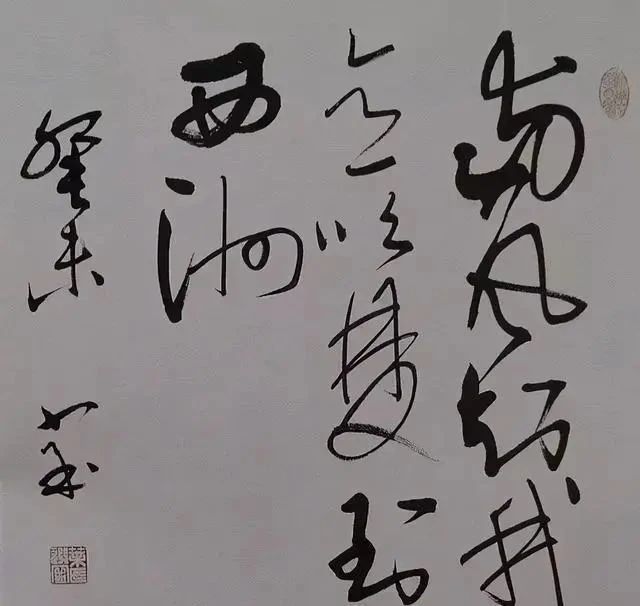 南风知我
意吹梦到
西洲
癸未